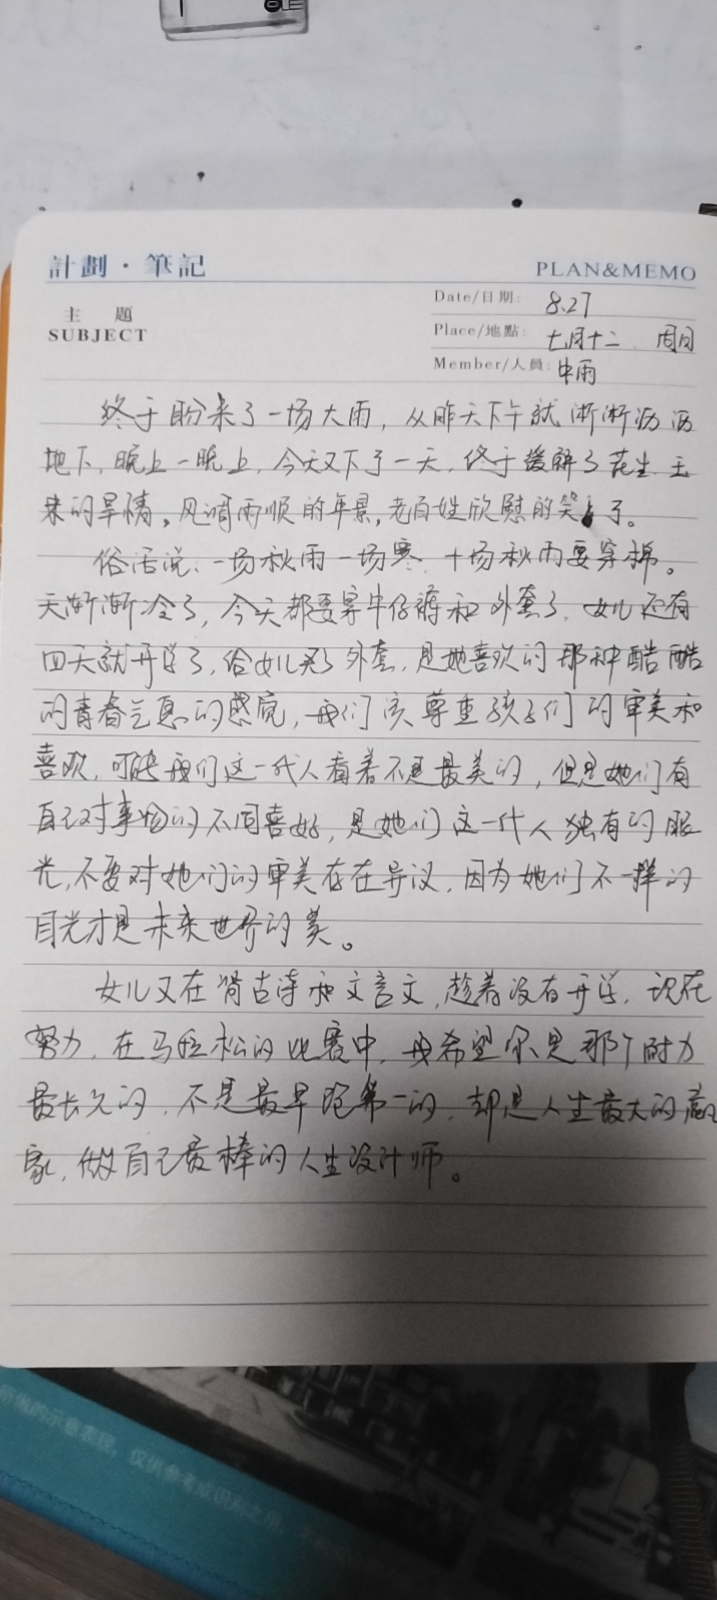 計劃·筆記
PLAN&MEMO
主 題
SUBJECT
Date/日期: 8.27
Place/地點: 七月十二 周日
Member/人員: 中雨
终于盼来了一场大雨，从昨天下午就淅淅沥沥
地下，晚上一晚上，今天又下了一天，终于缓解了花生玉
米的旱情。风调雨顺的年景，老百姓欣慰的笑了。
俗话说：一场秋雨一场寒，十场秋雨要穿棉。
天渐渐冷了，今天都要穿牛仔裤和外套了，女儿还有
四天就开学了，给女儿买了外套，是她喜欢的那种酷酷
的青春气息的感觉，我们该尊重孩子们的审美和
喜欢，可能我们这一代人看着不是最美的，但是她们有
自己对事物的不同喜好，是她们这一代人独有的眼
光，不要对她们的审美存在异议，因为她们不一样的
目光才是未来世界的美。
女儿又在背古诗和文言文，趁着没有开学，现在
努力，在马拉松的比赛中，我希望你是那个耐力
最长久的，不是最早跑第一的，却是人生最大的赢
家，做自己最棒的人生设计师。